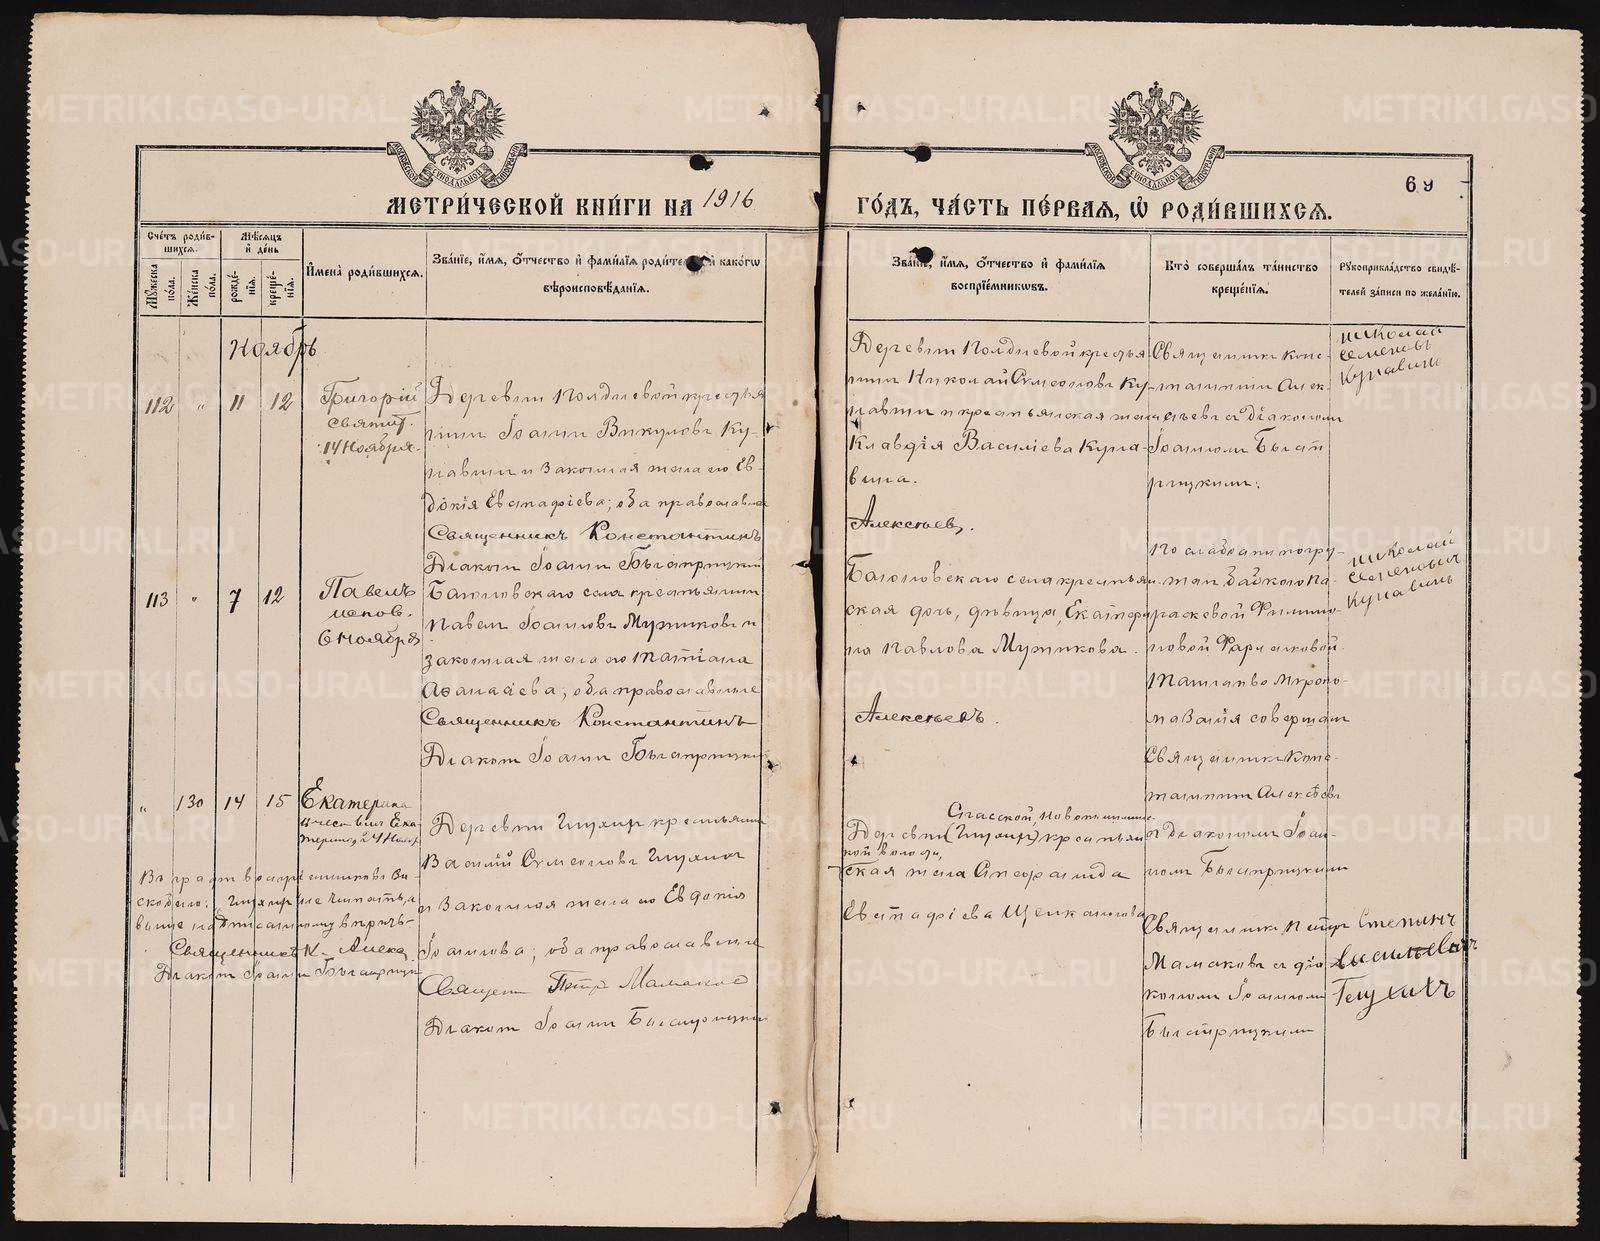 МЕТРИ́ЧЕСКОЙ КНИ́ГИ НА 1916
ГО́ДЪ, ЧА́СТЬ ПЕ́РВАЯ, Ѡ҆ РОДИ́ВШИХСЯ.
69
Сче́тъ роди́в-
шихся.
Мꙋ́жеска
по́ла.
Же́нска
по́ла.
Мѣ́сяцъ
и҆ де́нь
рожде́-
нїя.
креще́-
нїя.
И҆мена̀ роди́вшихся.
Зва́нїе, и҆́мя, ѻ҆́тчество и҆ фами́лїя роди́телей и҆ како́гѡ
вѣроисповѣ́данїя.
Зва́нїе, и҆́мя, ѻ҆́тчество и҆ фами́лїя
воспрїе́мникѡвъ.
Кто̀ соверша́лъ та́инство
креще́нїя.
Рꙋкоприкла́дство свидѣ́-
телей за́писи по жела́нїю.
Ноябрь
112 „ 11 12
Григорій
святит.
14 Ноября.
Деревни Полдневой крестья
нинъ Іоаннъ Викуловъ Ку-
навинъ и законная жена его Ев-
докія Евстафіева; оба православные
Священникъ Константинъ
Діаконъ Іоаннъ Быстрицкій
Деревни Полдневой крестья
нинъ Николай Симеоновъ Ку-
навинъ и крестьянская жена
Клавдія Василіева Куна-
вина.
Алексѣевъ.
Священникъ Конс-
тантинъ Алек-
сѣевъ съ діакономъ
Іоанномъ Быст
рицкимъ.
Николай
Семеновъ
Кунавинъ
113 „ 7 12
Павелъ
испов.
6 Ноября
Багарякскаго села крестьянинъ
Павелъ Іоанновъ Мужиковъ и
законная жена его Татіана
Аѳанасіева; оба православные
Священникъ Константинъ
Діаконъ Іоаннъ Быстрицкій
ская дочь, дѣвица, Екатери
на Павлова Мужикова.
Алексѣевъ.
По слабости погру-
женъ бабкою Па-
раскевой Филиппо-
новой
Таинство Мѵропо-
мазанія совершалъ
Священникъ Конс-
тантинъ Алексѣевъ
съ діакономъ Іоан-
номъ Быстрицкимъ
Николай
Семеновичъ
Кунавинъ
„ 130 14 15
Екатерина
в честь влмч. Ека
терины, 24 Нояб.
Деревни Глухихъ крестьянинъ
Василій Симеоновъ Глухихъ
и законная жена его Евдокія
Іоаннова; оба православные
Священ Петръ Мамаковъ
Діаконъ Іоаннъ Быстрицкій
Спасской,
Деревни (Глухихъ) крестьян
кой волости,
ская жена Стефанида
Евстафіева Щелканова
Священникъ Петръ
Мамаковъ съ діа
кономъ Іоанномъ
Быстрицкимъ
Степанъ
Васильевичъ
Глухихъ
Въ графѣ воспріемниковъ въ
скобкахъ: „Глухихъ не читать, а
выше надписанному вѣрить-
Священникъ К. Алекс
Діаконъ Іоаннъ Быстрицк